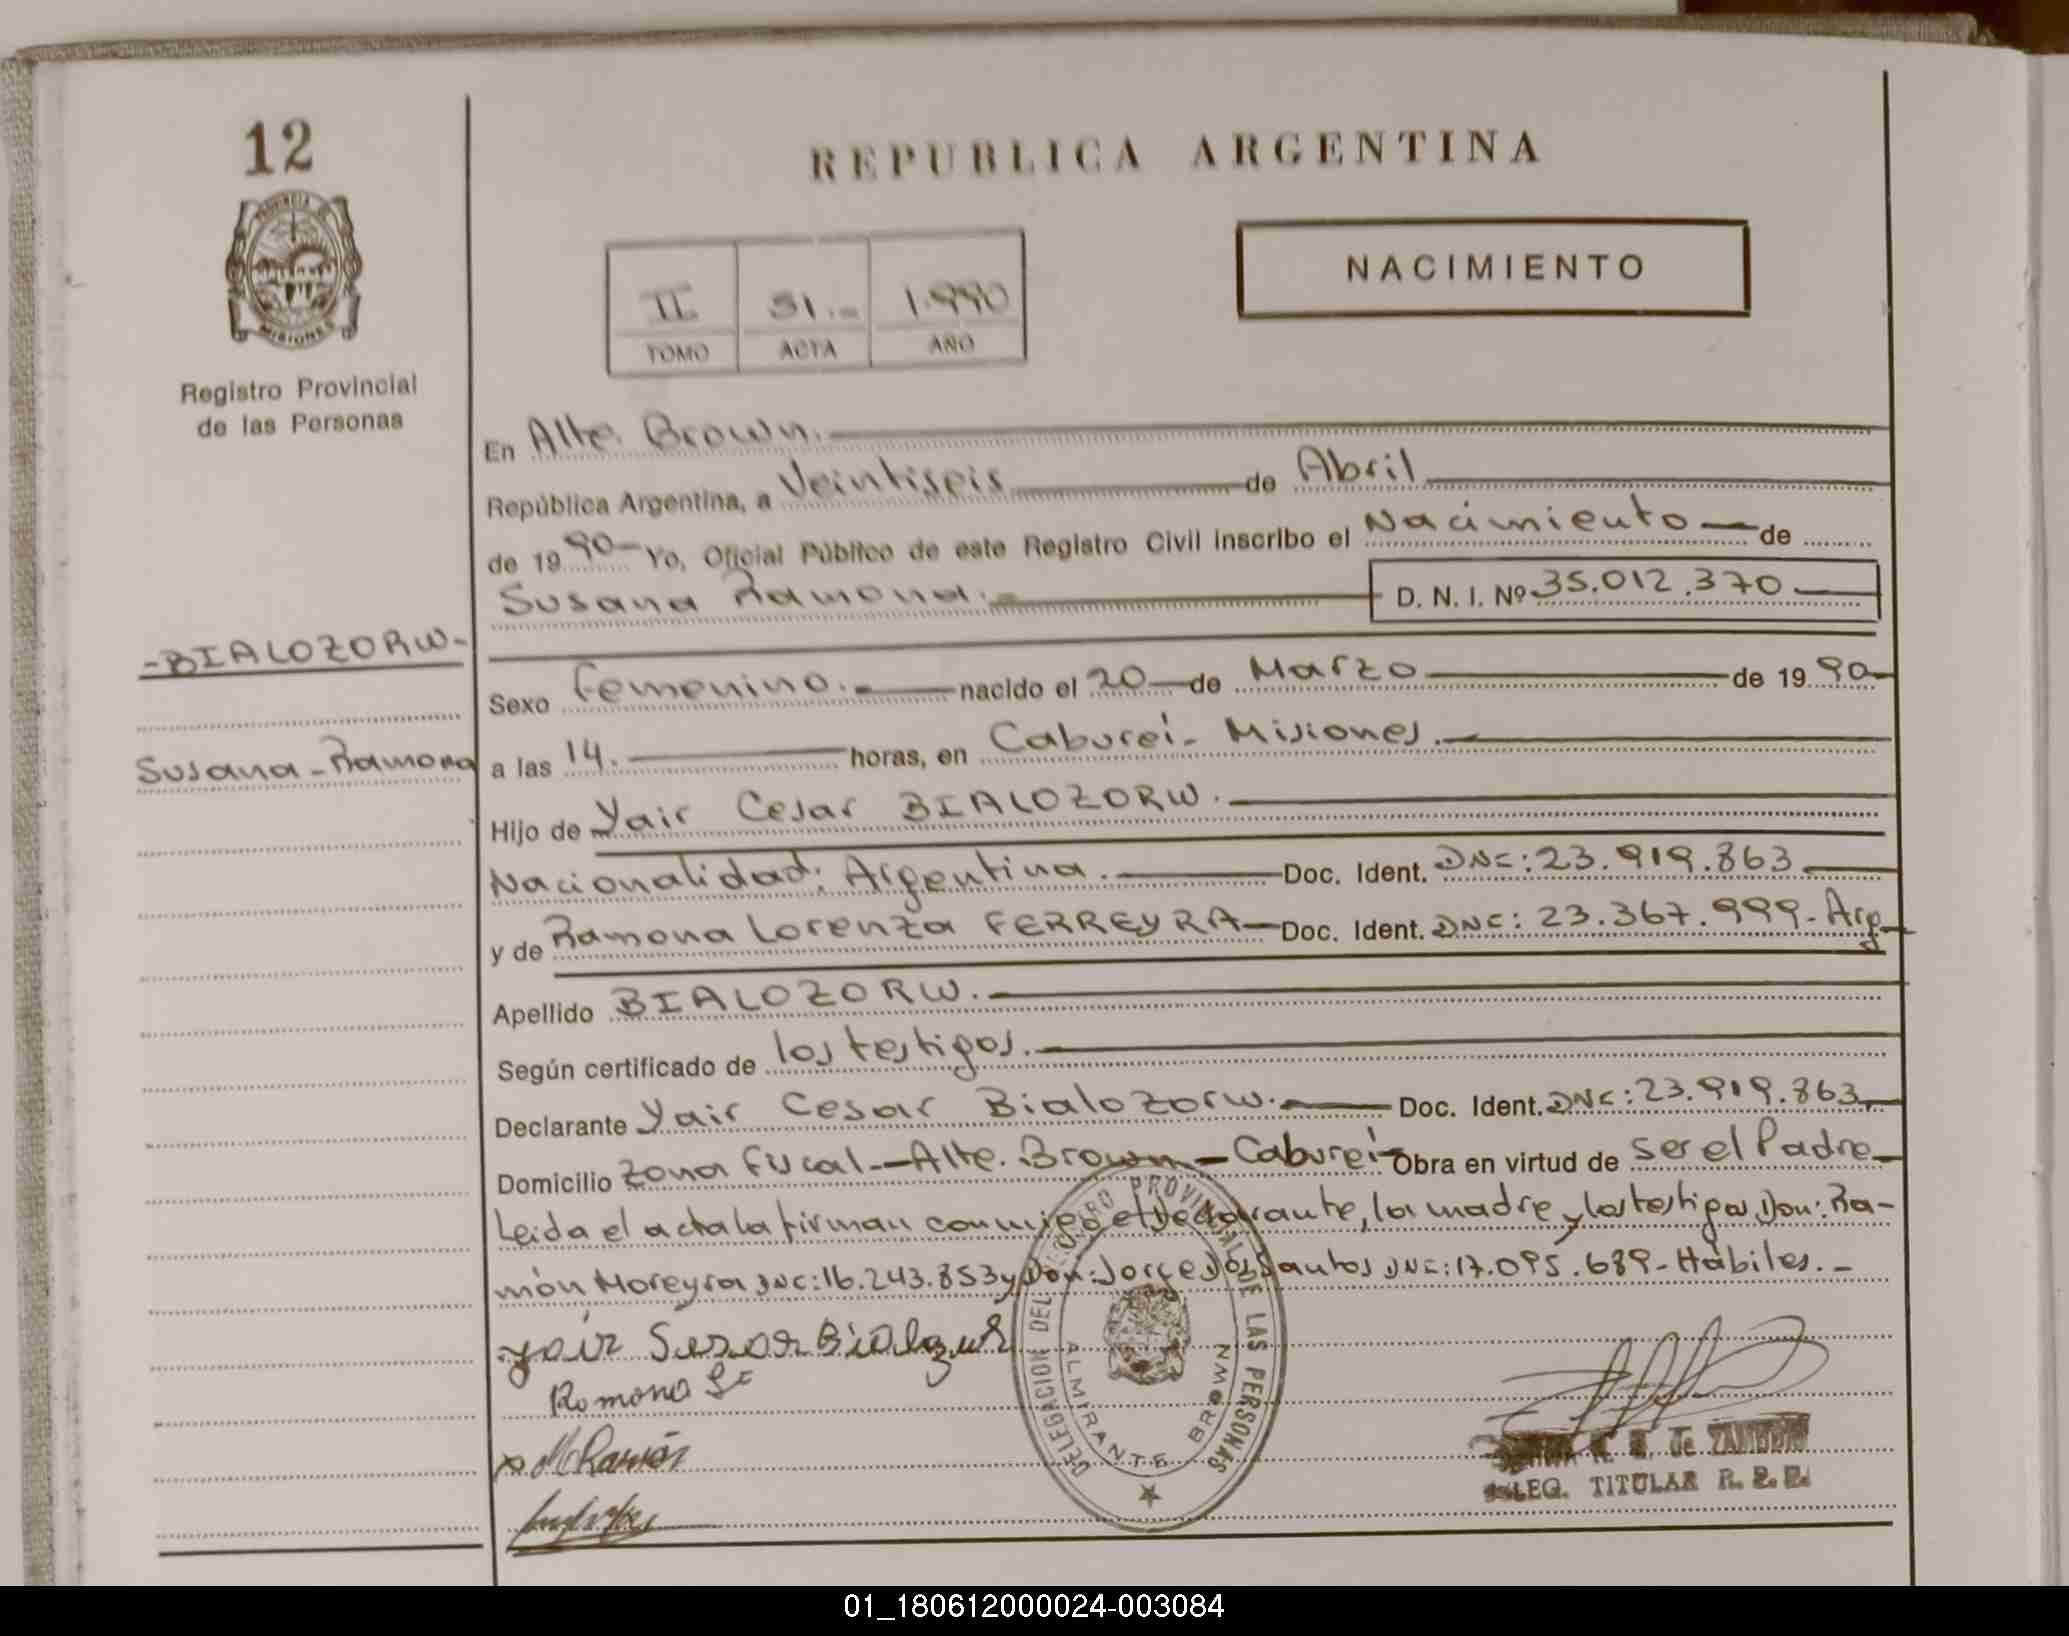 12
PROVINCIA DE
MISIONES
Registro Provincial
de las Personas
REPUBLICA ARGENTINA
NACIMIENTO
II 31.- 1.990
TOMO ACTA AÑO
En Alte. Brown.
República Argentina, a Veintiseis de Abril
de 1990- Yo, Oficial Público de este Registro Civil inscribo el Nacimiento de
Susana Ramona.- D. N. I. Nº 35.012.370
-BIALOZORW-
Susana - Ramona
Sexo Femenino.- nacido el 20 de Marzo de 1990
a las 14. horas, en Cabureí- Misiones.
Hijo de Yair Cesar BIALOZORW.
Nacionalidad: Argentina. Doc. Ident. DNC: 23.919.863
y de Ramona Lorenza FERREYRA Doc. Ident. DNC: 23.367.999- Arg
Apellido BIALOZORW.
Según certificado de los testigos.
Declarante Yair Cesar Bialozorw. Doc. Ident. DNC: 23.919.863
Domicilio Zona Fiscal - Alte. Brown - Cabureí Obra en virtud de ser el Padre
Leida el acta la firman conmigo el Declarante, la madre y los testigos Don: Ra-
món Moreyra DNC: 16.243.853 y Don: Jorge Dos Santos DNC: 17.095.689- Hábiles.-
Ramona
M Ramón
DELEGACION DEL REGISTRO PROVINCIAL DE LAS PERSONAS
ALMIRANTE BROWN
de
DELEG. TITULAR R. P. P.
01_180612000024-003084